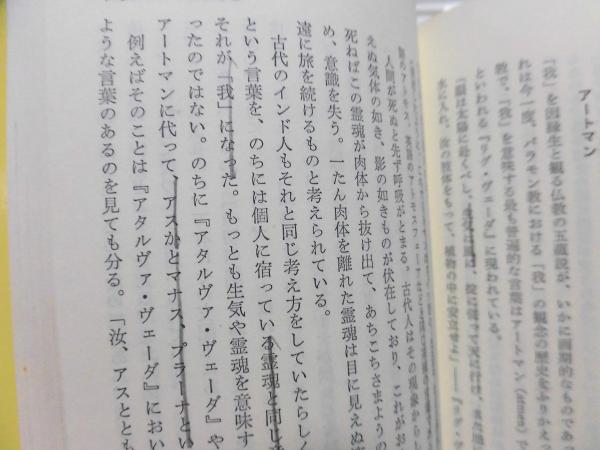 アートマン
「我」を因縁生と観る仏教の五蘊説が、いかに画期的なものであ
れは今一度、バラモン教における「我」の観念の歴史をふりかえっ
教で、「我」を意味する最も普遍的な言葉はアートマン(atman)で
といわれる『リグ・ヴェーダ』に現われている。
「眼は太陽に赴くべし、
水に入れ、汝の肢体をもって、植物の中に安立せよ」——『リグ・ヴ
人間が死ぬと先ず呼吸がとまる。古代人はその現象から
えぬ気体の如き、影の如きものが伏在しており、これがお
死ねばこの霊魂が肉体から抜け出て、あちこちさまようの
め、意識を失う。一たん肉体を離れた霊魂は目に見えぬ
遠に旅を続けるものと考えられている。
古代のインド人もそれと同じ考え方をしていたらしく
という言葉を、のちには個人に宿っている霊魂と同じ
それが「我」になった。もっとも生気や霊魂を意味す
ったのではない。のちに『アタルヴァ・ヴェーダ』や
アートマンに代って、アスかとマナス、プラーナとい
例えばそのことは『アタルヴァ・ヴェーダ』におい
ような言葉のあるのを見ても分る。「汝、アスととも